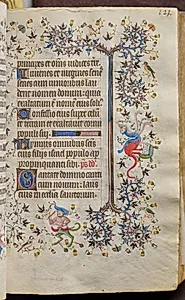 principes et omnes iudices terre
Iuvenes et virgines senes
cum iunioribus lau
dent nomen domini: quia
exaltatum est nomen eius solius
Confessio eius super celum
et terram: et exaltavit cornu
populi sui
Ympnus omnibus sanctis
eius filiis israel populo ap
propinquanti sibi. ps dd
Cantate domino canti
cum novum: laus
eius in ecclesia sanctorum.